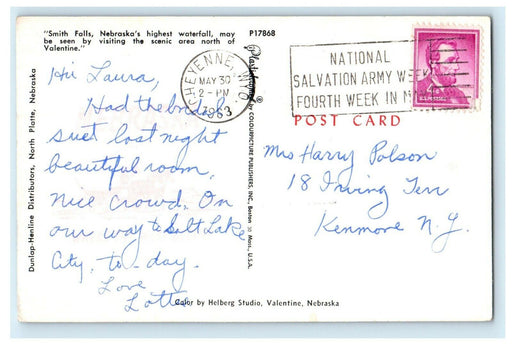 "Smith Falls, Nebraska's highest waterfall, may
be seen by visiting the scenic area north of
Valentine."
P17868
Hi Laura,
Had the bridal
suet last night
beautiful room,
nice crowd. On
our way to Salt Lake
City, to-day.
Love
Lotte
Dunlap-Henline Distributors, North Platte, Nebraska
Plastichrome ®
COLOURPICTURE PUBLISHERS, INC., Boston 30 Mass., U.S.A.
CHEYENNE, WYO.
MAY 30
2-PM
1963
NATIONAL
SALVATION ARMY WEEK
FOURTH WEEK IN
POST CARD
Mrs Harry Polson
18 Irving Terr
Kenmore N.Y.
Color by Helberg Studio, Valentine, Nebraska